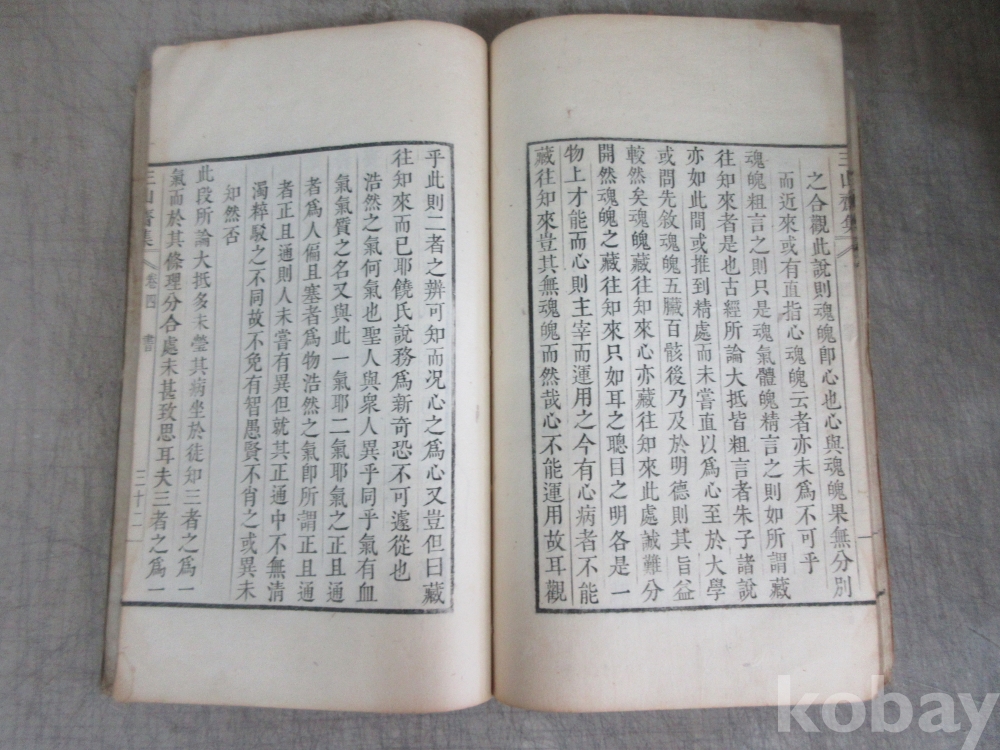 之合觀此說則魂魄卽心也心與魂魄果無分別
而近來或有直指心魂魄云者亦未爲不可乎
魂魄粗言之則只是魂氣體魄精言之則如所謂藏
往知來者是也古經所論大抵皆粗言者朱子諸說
亦如此間或推到精處而未嘗直以爲心至於大學
或問先敘魂魄五臟百骸後乃及於明德則其旨益
較然矣魂魄藏往知來心亦藏往知來此處誠難分
開然魂魄之藏往知來只如耳之聰目之明各是一
物上才能而心則主宰而運用之今有心病者不能
藏往知來豈其無魂魄而然哉心不能運用故耳觀
乎此則二者之辨可知而況心之爲心又豈但曰藏
往知來而已耶饒氏說務爲新奇恐不可遽從也
浩然之氣何氣也聖人與衆人異乎同乎氣有血
氣氣質之名又與此一氣耶二氣耶氣之正且通
者爲人偏且塞者爲物浩然之氣卽所謂正且通
者正且通則人未嘗有異但就其正通中不無清
濁粹駁之不同故不免有智愚賢不肖之或異未
知然否
此段所論大抵多未瑩其病坐於徒知三者之爲一
氣而於其條理分合處未甚致思耳夫三者之爲一
三山齋集 卷四 書 三十二
kobay